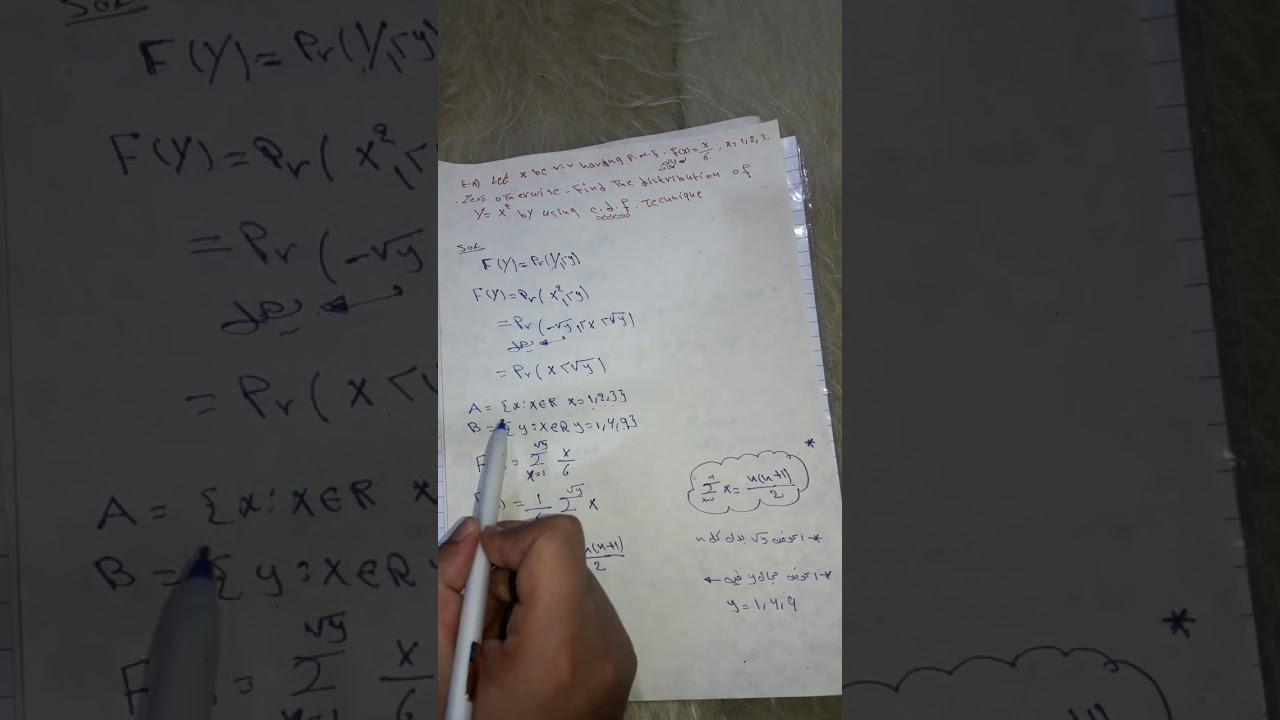 Ex) Let x be r.v having p.m.f. f(x) = x/6, x=1,2,3,
Zero otherwise. Find The distribution of
Y= x² by using c.d.f. Technique
Sol
F(Y)=Pr(Y≤y)
F(Y)=Pr(x²≤y)
=Pr(-√y≤x≤√y)
يهمل
=Pr(x≤√y)
A = {x:x∈R x=1,2,3}
B = {y:x∈R y=1,4,9}
= Σ^√y_x=1 x/6
= 1/6 Σ^√y x
n(n+1)/2
Σ^n_x=1 x = n(n+1)/2
y=1,4,9